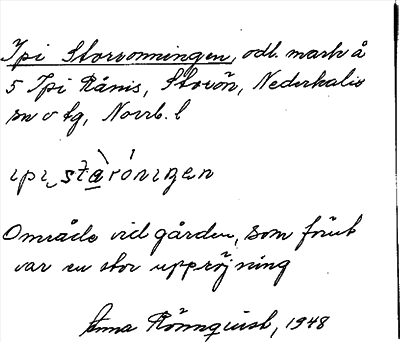 Ipi Storronningen, odl. mark å
5 Ipi Rånis, Storön, Nederkalix
sn o tg, Norrb. l
ɩpɩ stàrónɩgen
Område vid gården, som förut
var en stor uppröjning
Anna Rönnquist, 1948